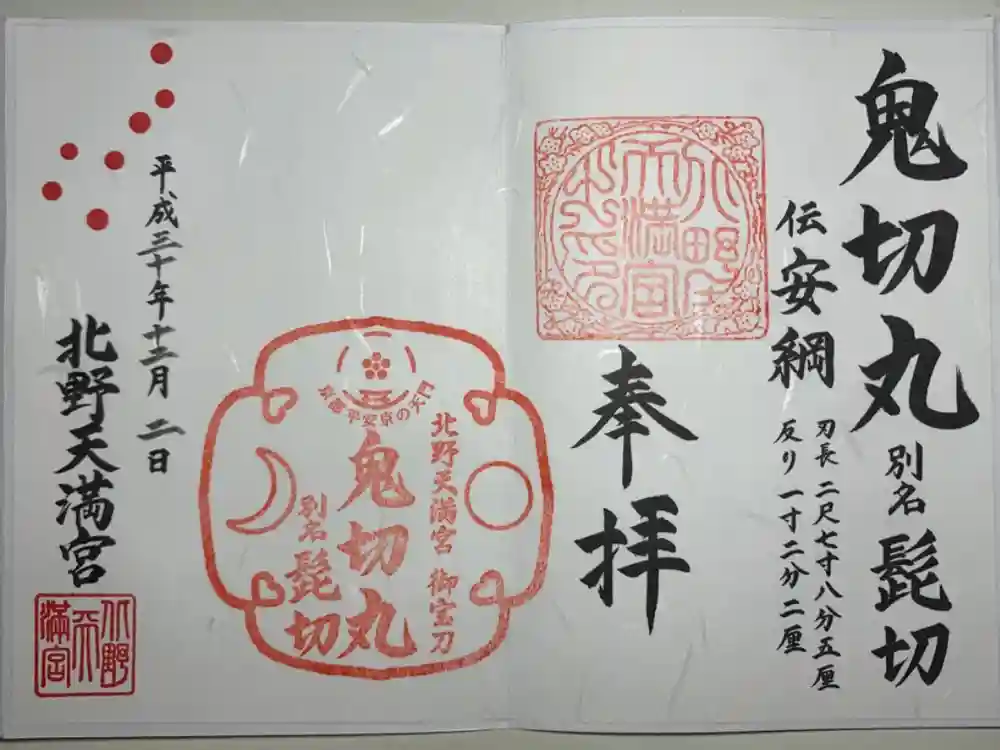 鬼切丸 別名 髭切
伝 安綱
刃長 二尺七寸八分五厘
反り 一寸二分二厘
奉拝
北野天満宮 御宝刀
平安京の天門
鬼切丸
別名 髭切
平成三十年十二月 二日
北野天満宮
北野
天
満宮